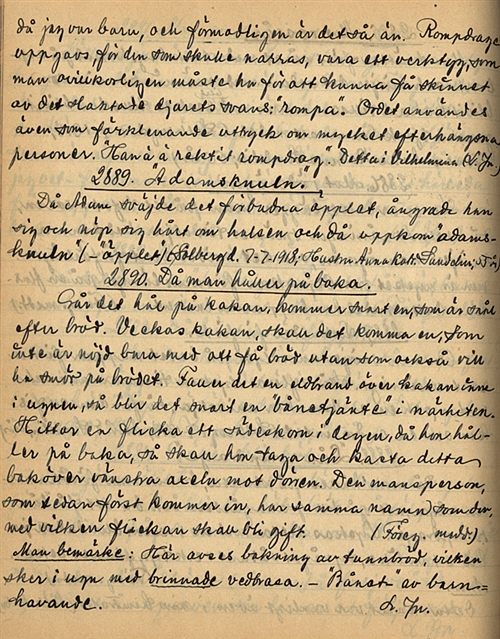 då jag var barn, och förmodligen är det så än. Rompdrage
uppgavs, för den som skulle narras, vara ett verktyg, som
man ovillkorligen måste ha för att kunna få skinnet
av det slaktade djurets svans: "rompa". Ordet användes
även som förklenande uttryck om mycket efterhängsna
personer. "Han ä å rektit rompdrag". Detta i Vilhelmina (L. Jn.)
2889. "Adamsknuln."
Då Adam sväljde det förbudna äpplet, ångrade han
sig och nöp sig hårt om halsen och då uppkom "adams-
knuln" (-"äpplet") (Solberg d. 7-7-1918; Hustru Anna Kata Sandelin,
2890. Då man håller på baka.
Går det hål på kakan, kommer snart en, som är svält
efter bröd. Veckas kakan, skall det komma en, som
inte är nöjd bara med att få bröd utan som också vill
ha smör på brödet. Faller det en eldbrand över kakan inne
i ugnen, så blir det snart en "bånetjänte" i närheten.
Hittar en flicka ett sädeskorn i degen, då hon hål-
ler på baka, så skall hon taga och kasta detta
bakover vänstra axeln mot dören. Den mansperson,
som sedan först kommer in, har samma namn som den,
med vilken flickan skall bli gift. (Föreg. medd.)
Man bemärke: Här avses bakning av tunnbröd, vilken
sker i ugn med brinnade vedbrasa. – "Bånat" av barn-
havande. L. Jn.